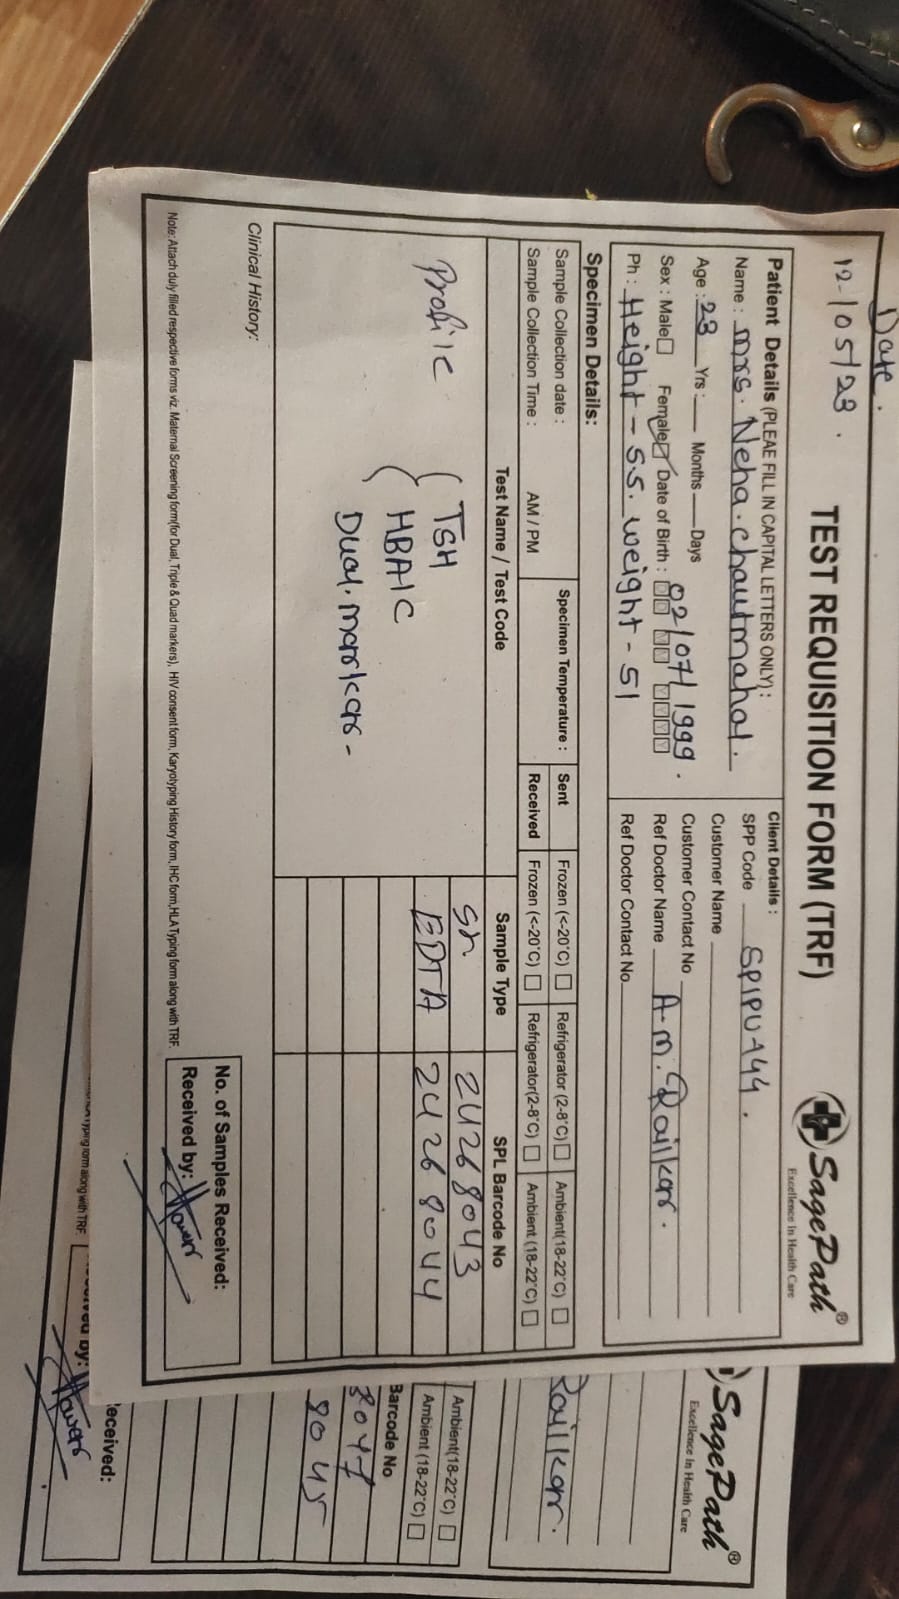 Date.
12/05/23.
TEST REQUISITION FORM (TRF)
SagePath®
Excellence In Health Care
Patient Details (PLEAE FILL IN CAPITAL LETTERS ONLY) :
Name : Mrs. Neha. chautmahal.
Age : 23 Yrs : Months Days
Sex : Male Female Date of Birth : 02/07/1999.
DD MM YYYY
Ph : Height - 5.5. weight - 51
Client Details :
SPP Code SPIPUA44.
Customer Name
Customer Contact No
Ref Doctor Name A.M. Railkar.
Ref Doctor Contact No
Specimen Details:
Sample Collection date :
Sample Collection Time : AM / PM
Specimen Temperature :
Sent Frozen (<-20°C) Refrigerator (2-8°C) Ambient(18-22°C)
Received Frozen (<-20°C) Refrigerator(2-8°C) Ambient (18-22°C)
Test Name / Test Code Sample Type SPL Barcode No
Profile ( TSH Sr 24268043
( HBA1C EDTA 24268044
Dual. markars -
Clinical History:
No. of Samples Received:
Received by:
Note: Attach duly filled respective forms viz. Maternal Screening form(for Dual, Triple & Quad markers), HIV consent form, Karyotyping History form, IHC form, HLA Typing form along with TRF.
SagePath®
Excellence In Health Care
Railkar.
Ambient(18-22°C)
Ambient (18-22°C)
Barcode No
8047
8045
Typing form along with TRF.
eceived:
eived by: